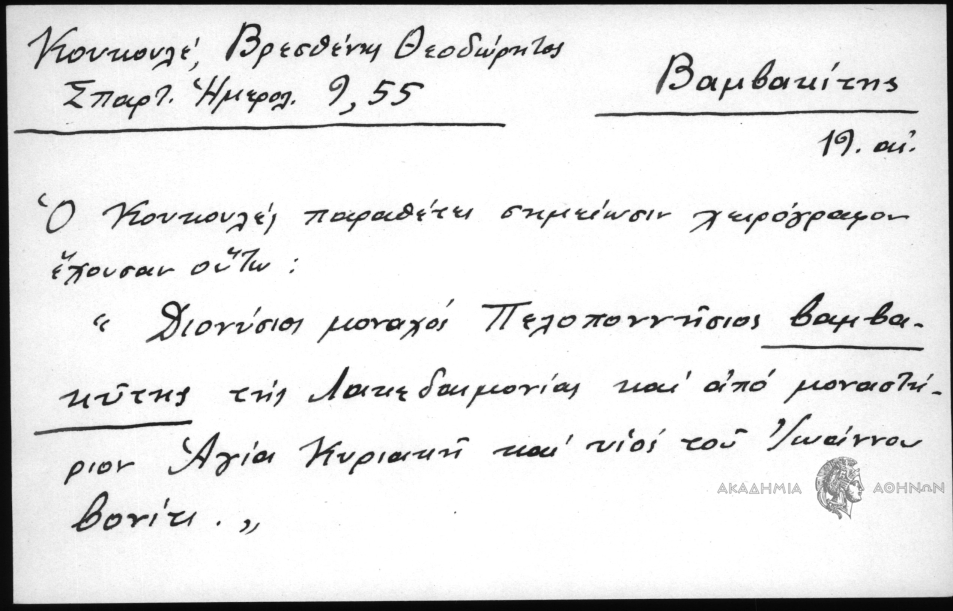 Κουκουλέ, Βρεσθένης Θεοδώρητος
Σπαρτ. Ἡμερολ. 9, 55
Βαμβακίτης
19. αἰ.
Ὁ Κουκουλές παραθέτει σημείωσιν χειρόγραφον
ἔχουσαν οὕτω :
“ Διονύσιος μοναχός Πελοποννήσιος βαμβα-
κῦτης τῆς Λακεδαιμονίας καί ἀπό μοναστή-
ριον Ἁγία Κυριακῆ καί υἱός τοῦ Ἰωάννου
βονίτι . „
ΑΚΑΔΗΜΙΑ ΑΘΗΝΩΝ